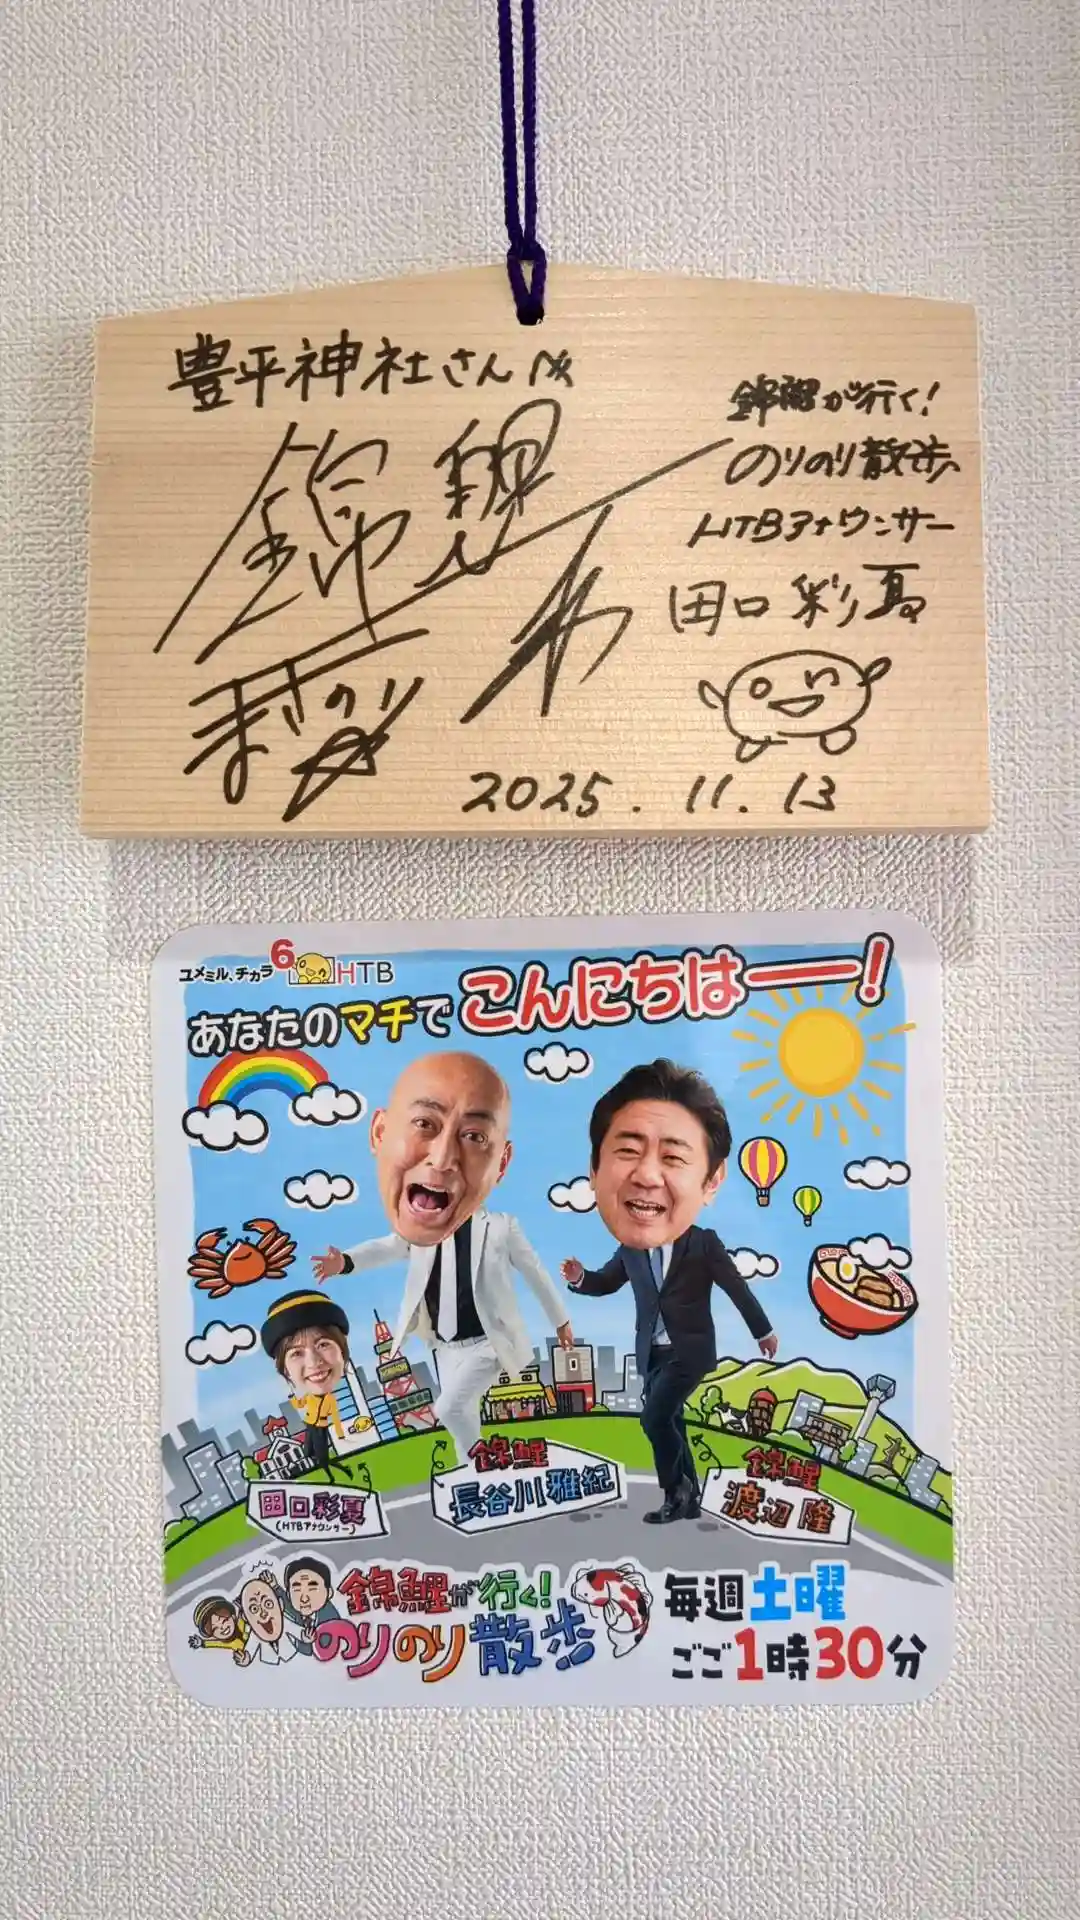 豊平神社さん江
錦鯉
まさのり
錦鯉が行く!
のりのり散歩
HTBアナウンサー
田口彩夏
2025.11.13
ユメミル、チカラ 6 HTB
あなたのマチで こんにちはー!
田口彩夏
(HTBアナウンサー)
錦鯉
長谷川雅紀
錦鯉
渡辺 隆
錦鯉が行く!
のりのり散歩
毎週土曜
ごご1時30分